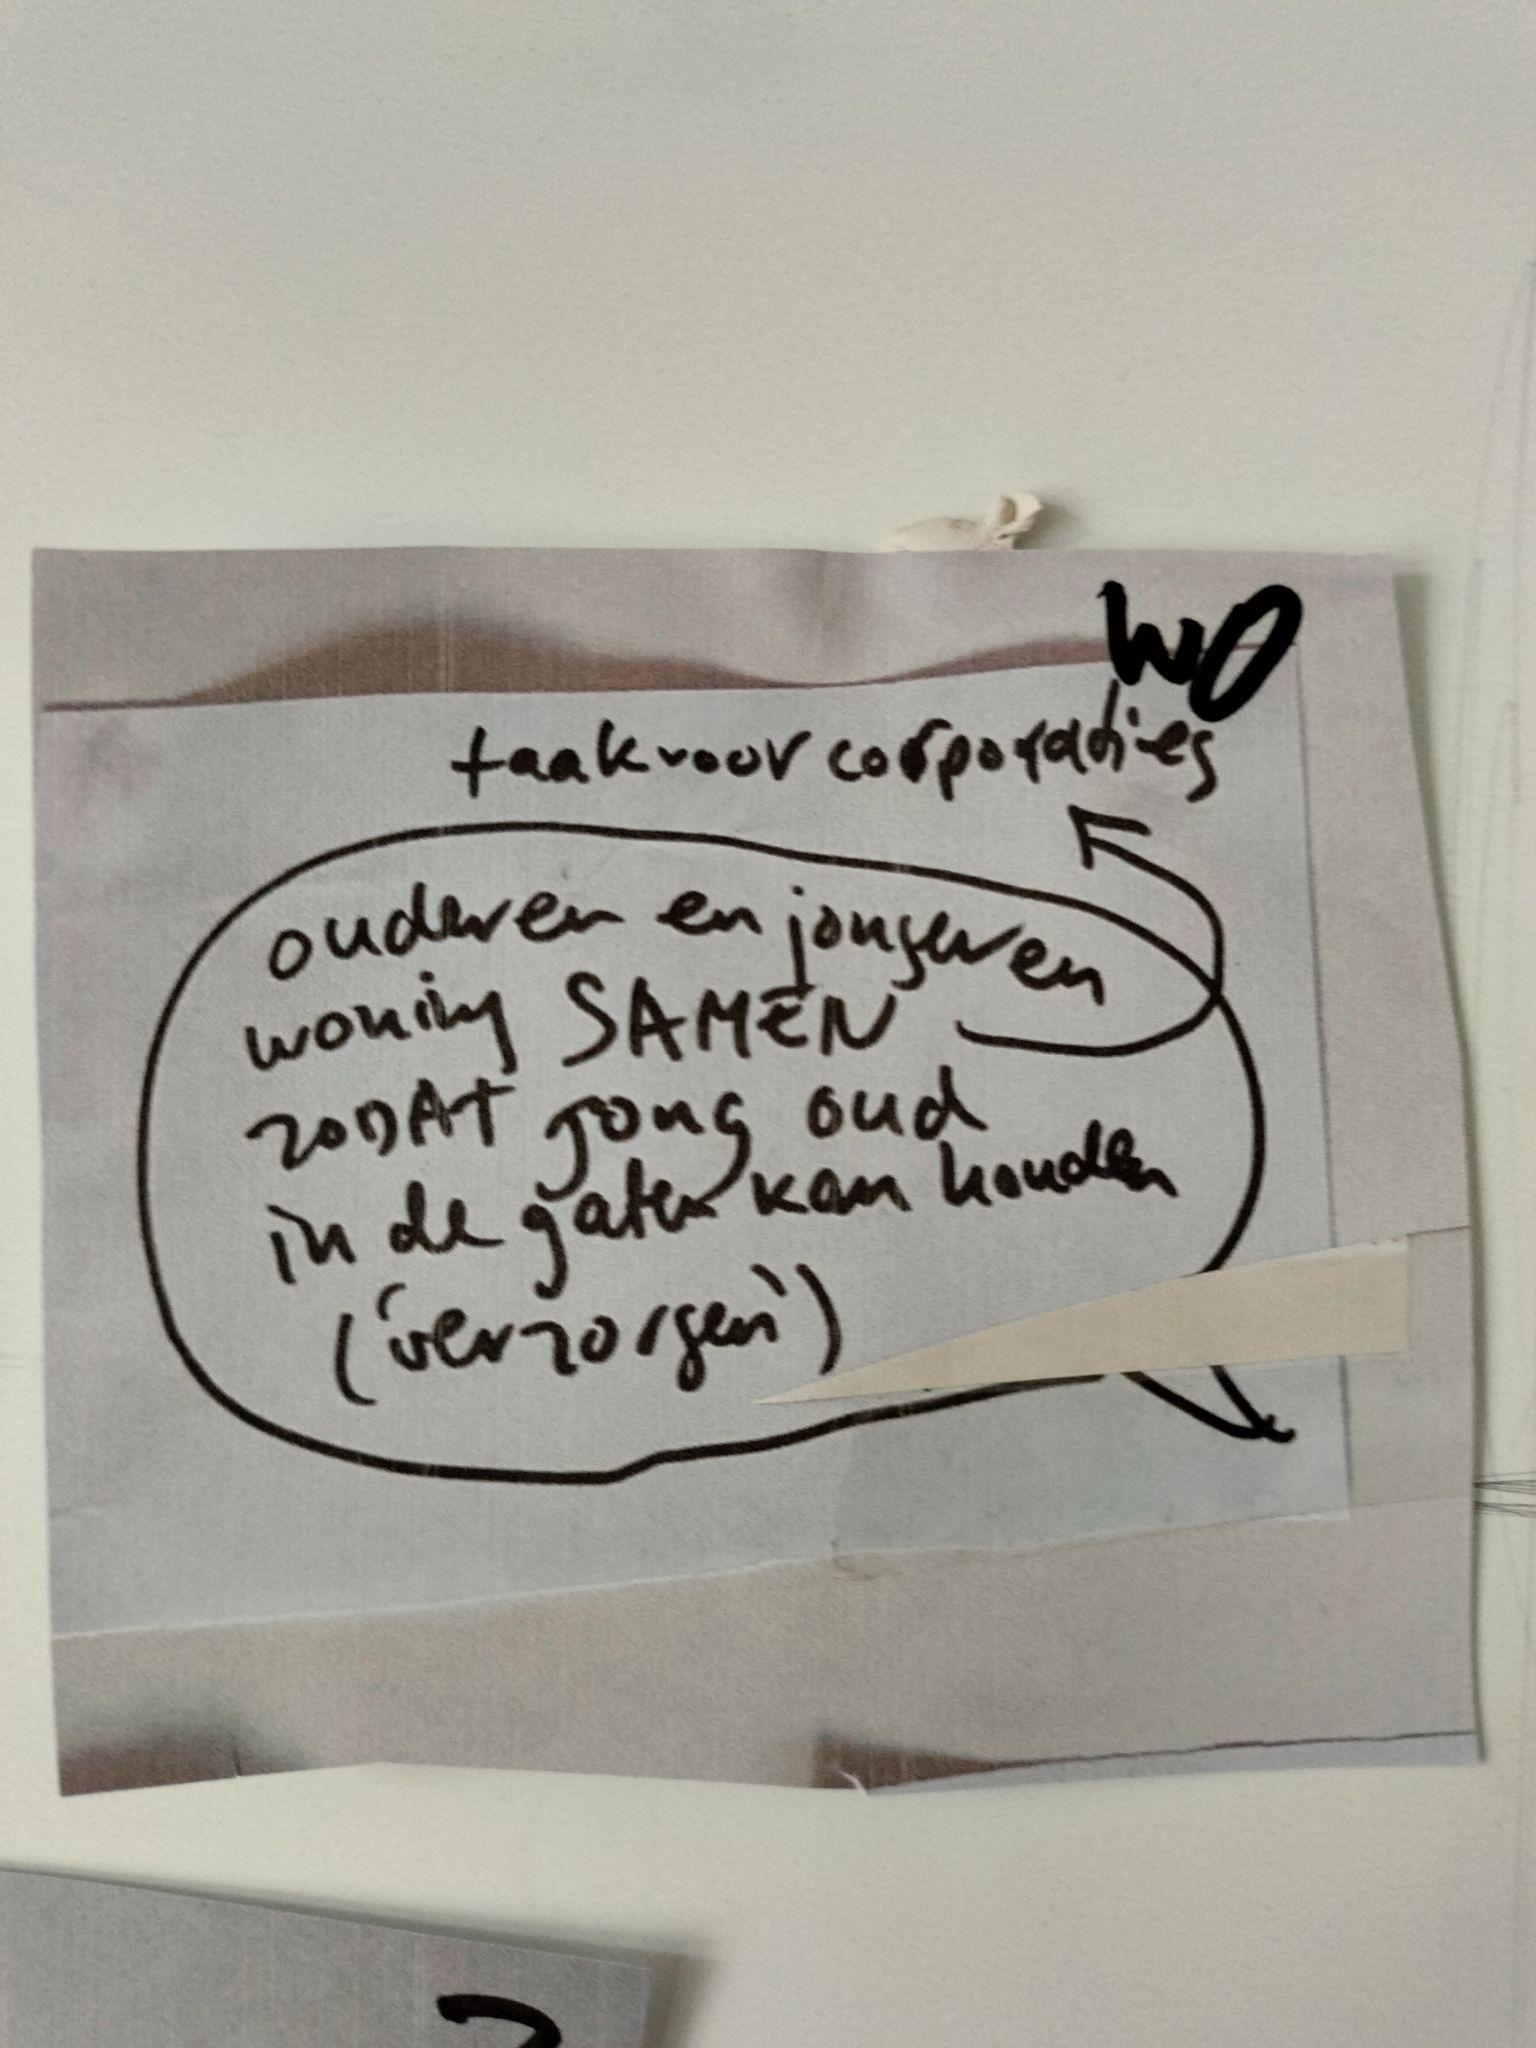 WO
taak voor corporaties
ouderen en jongeren
woning SAMEN
ZODAT jong oud
in de gaten kan houden
('verzorgen')